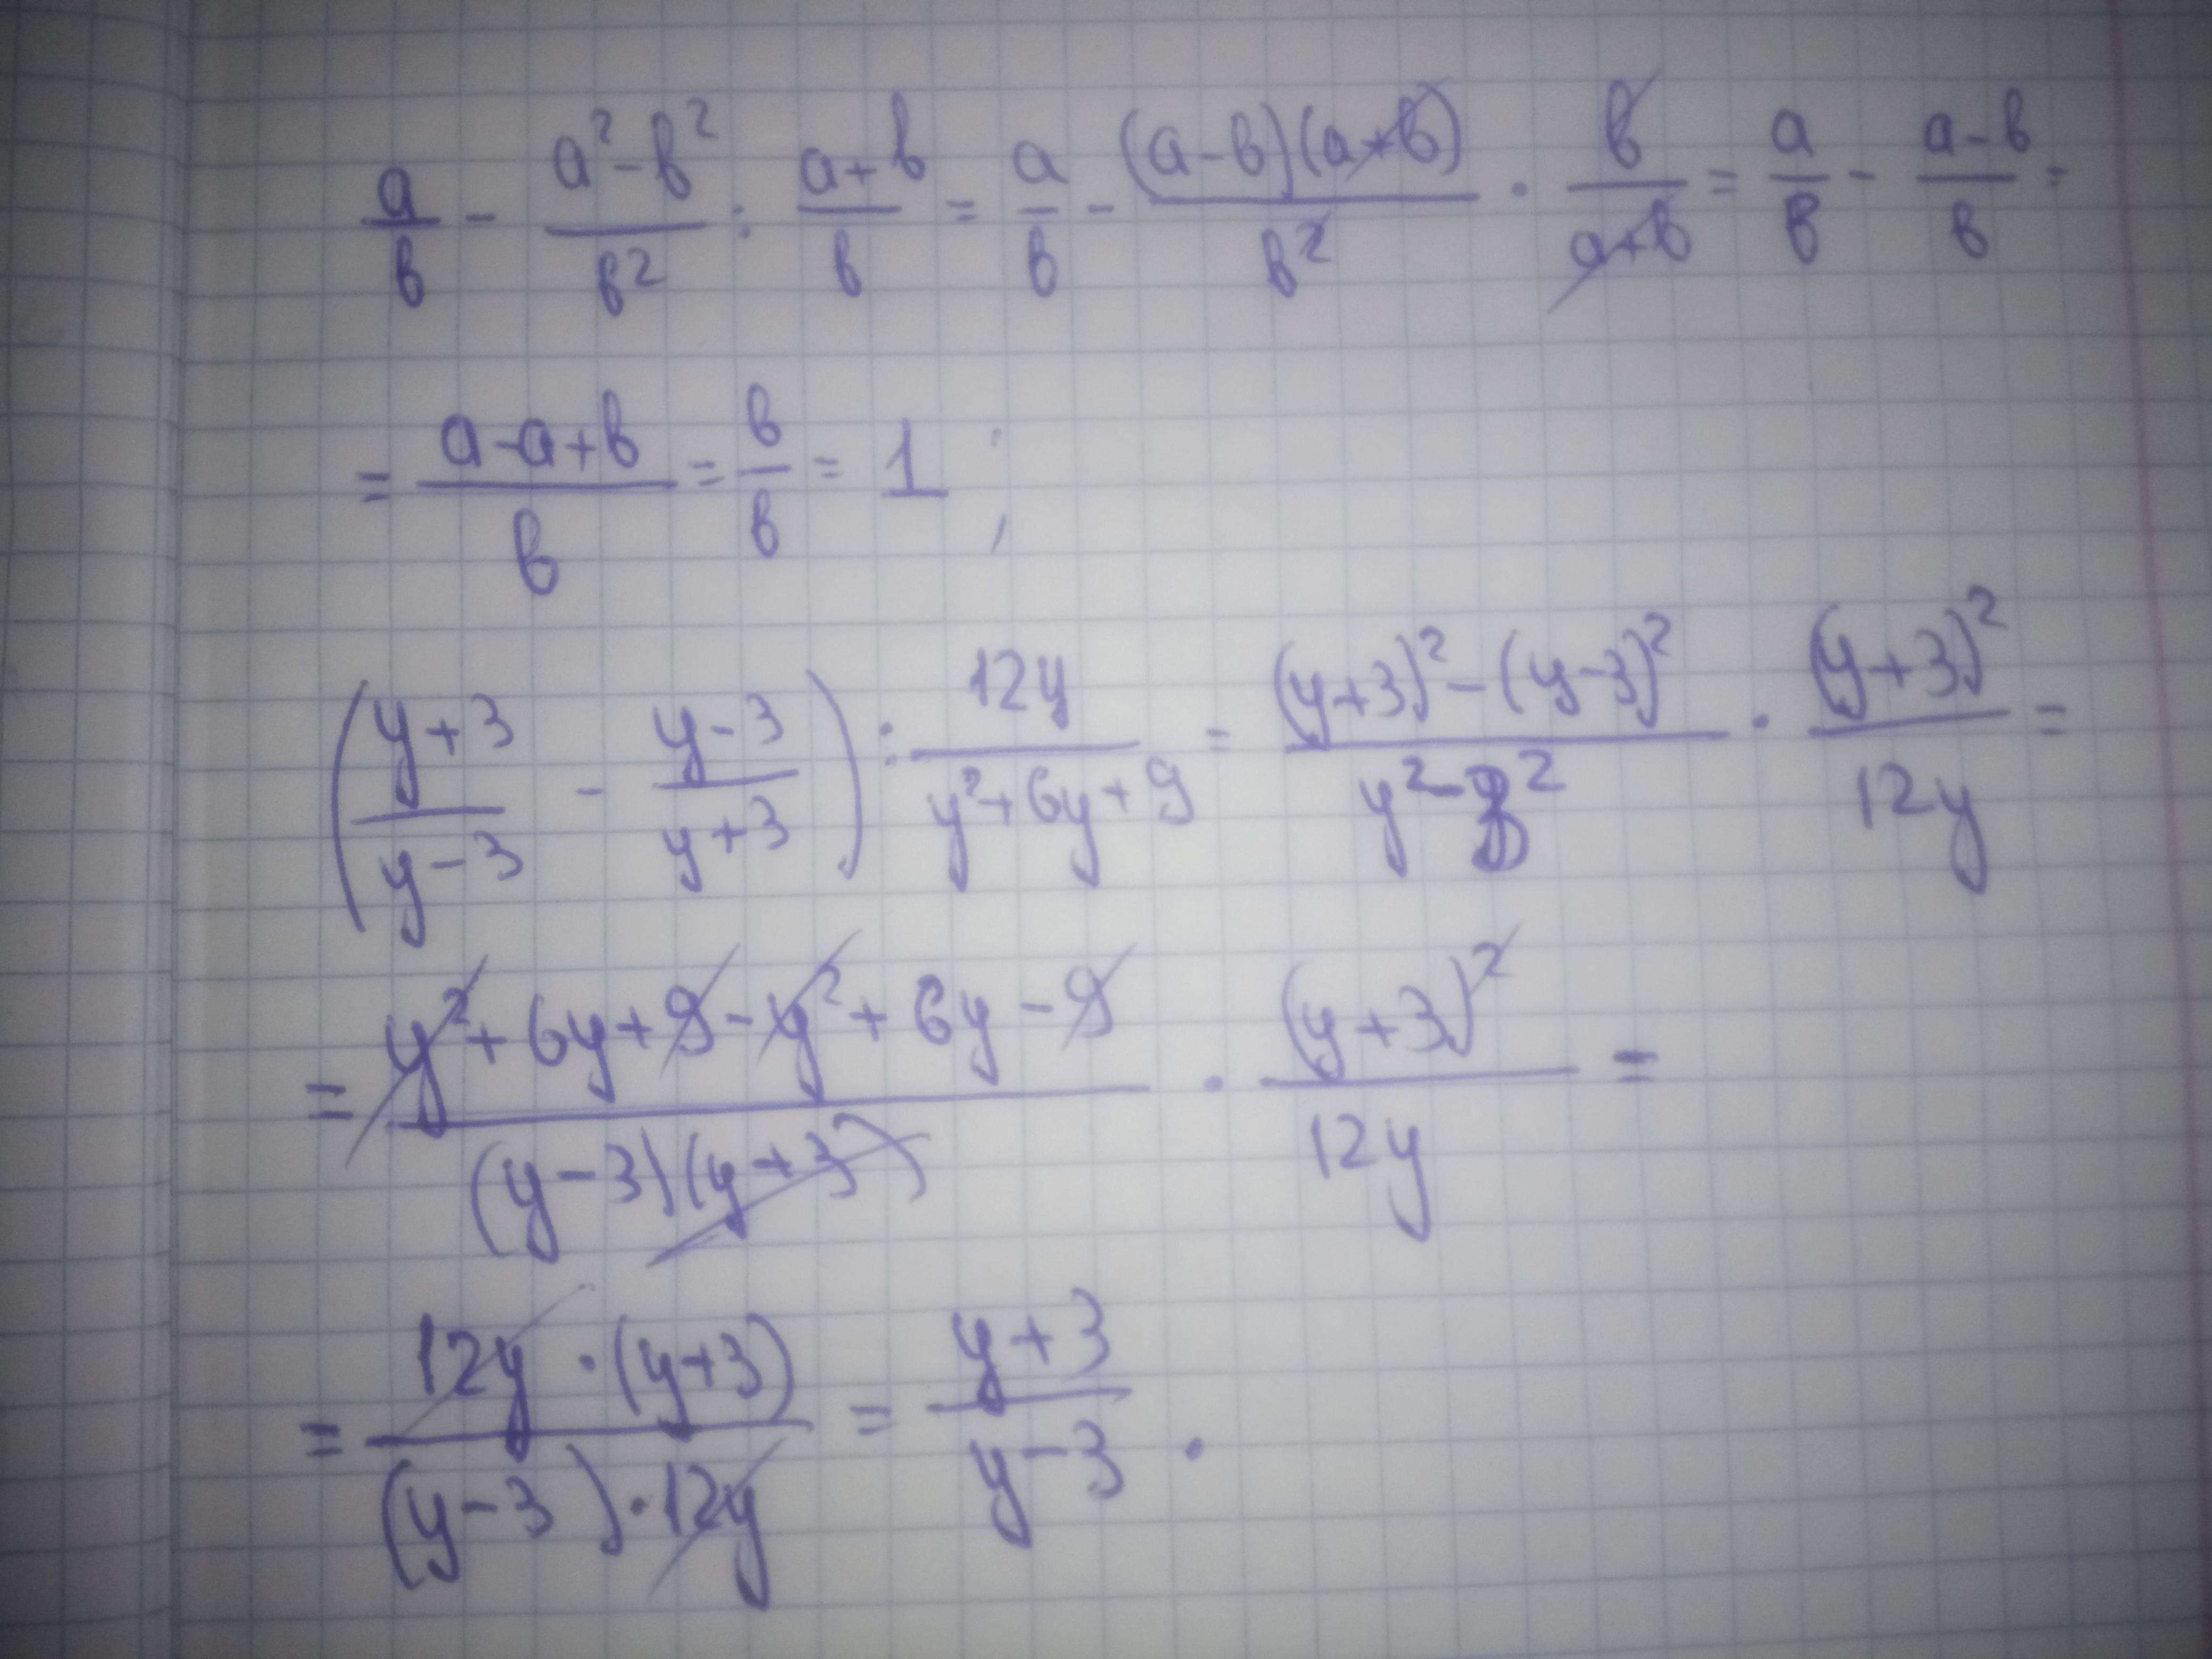 a/в - (a² - в²)/в² : (a + в)/в = a/в - (a - в)(a + в)/в² · в/(a + в) = a/в - (a - в)/в =
= (a - a + в)/в = в/в = 1 ;
((y + 3)/(y - 3) - (y - 3)/(y + 3)) : 12y/(y² + 6y + 9) = ((y + 3)² - (y - 3)²)/(y² - 3²) · (y + 3)²/12y =
= (y² + 6y + 9 - y² + 6y - 9)/((y - 3)(y + 3)) · (y + 3)²/12y =
= (12y · (y + 3))/((y - 3) · 12y) = (y + 3)/(y - 3) .